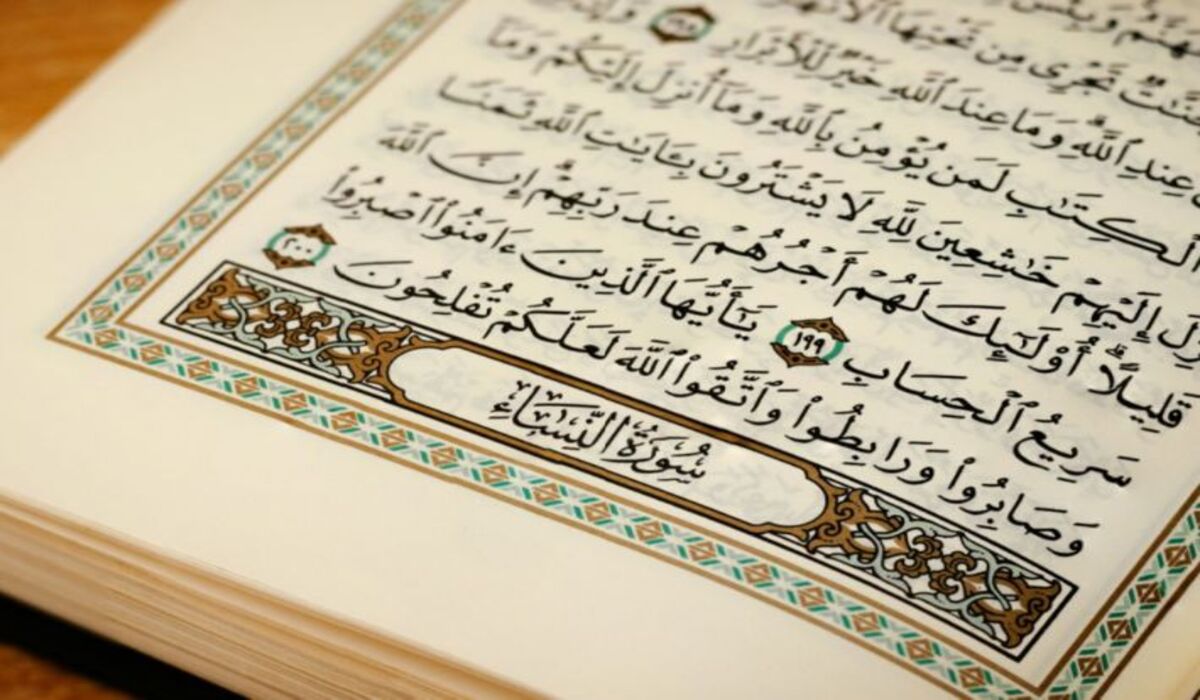 وَبِئْسَ
تَجْرِى مِن تَحْتِهَا
عِندِ ٱللَّهِ ۗ وَمَا عِندَ ٱللَّهِ خَيْرٌ لِّلْأَبْرَارِ ١٩٨
ٱلْكِتَٰبِ لَمَن يُؤْمِنُ بِٱللَّهِ وَمَآ أُنزِلَ إِلَيْكُمْ وَمَآ
إِلَيْهِمْ خَٰشِعِينَ لِلَّهِ لَا يَشْتَرُونَ بِـَٔايَٰتِ ٱللَّهِ ثَمَنًا
قَلِيلًا ۗ أُو۟لَٰٓئِكَ لَهُمْ أَجْرُهُمْ عِندَ رَبِّهِمْ ۗ إِنَّ ٱللَّهَ
سَرِيعُ ٱلْحِسَابِ ١٩٩ يَٰٓأَيُّهَا ٱلَّذِينَ ءَامَنُوا۟ ٱصْبِرُوا۟
وَصَابِرُوا۟ وَرَابِطُوا۟ وَٱتَّقُوا۟ ٱللَّهَ لَعَلَّكُمْ تُفْلِحُونَ ٢٠٠
سُورَةُ النِّسَاءِ